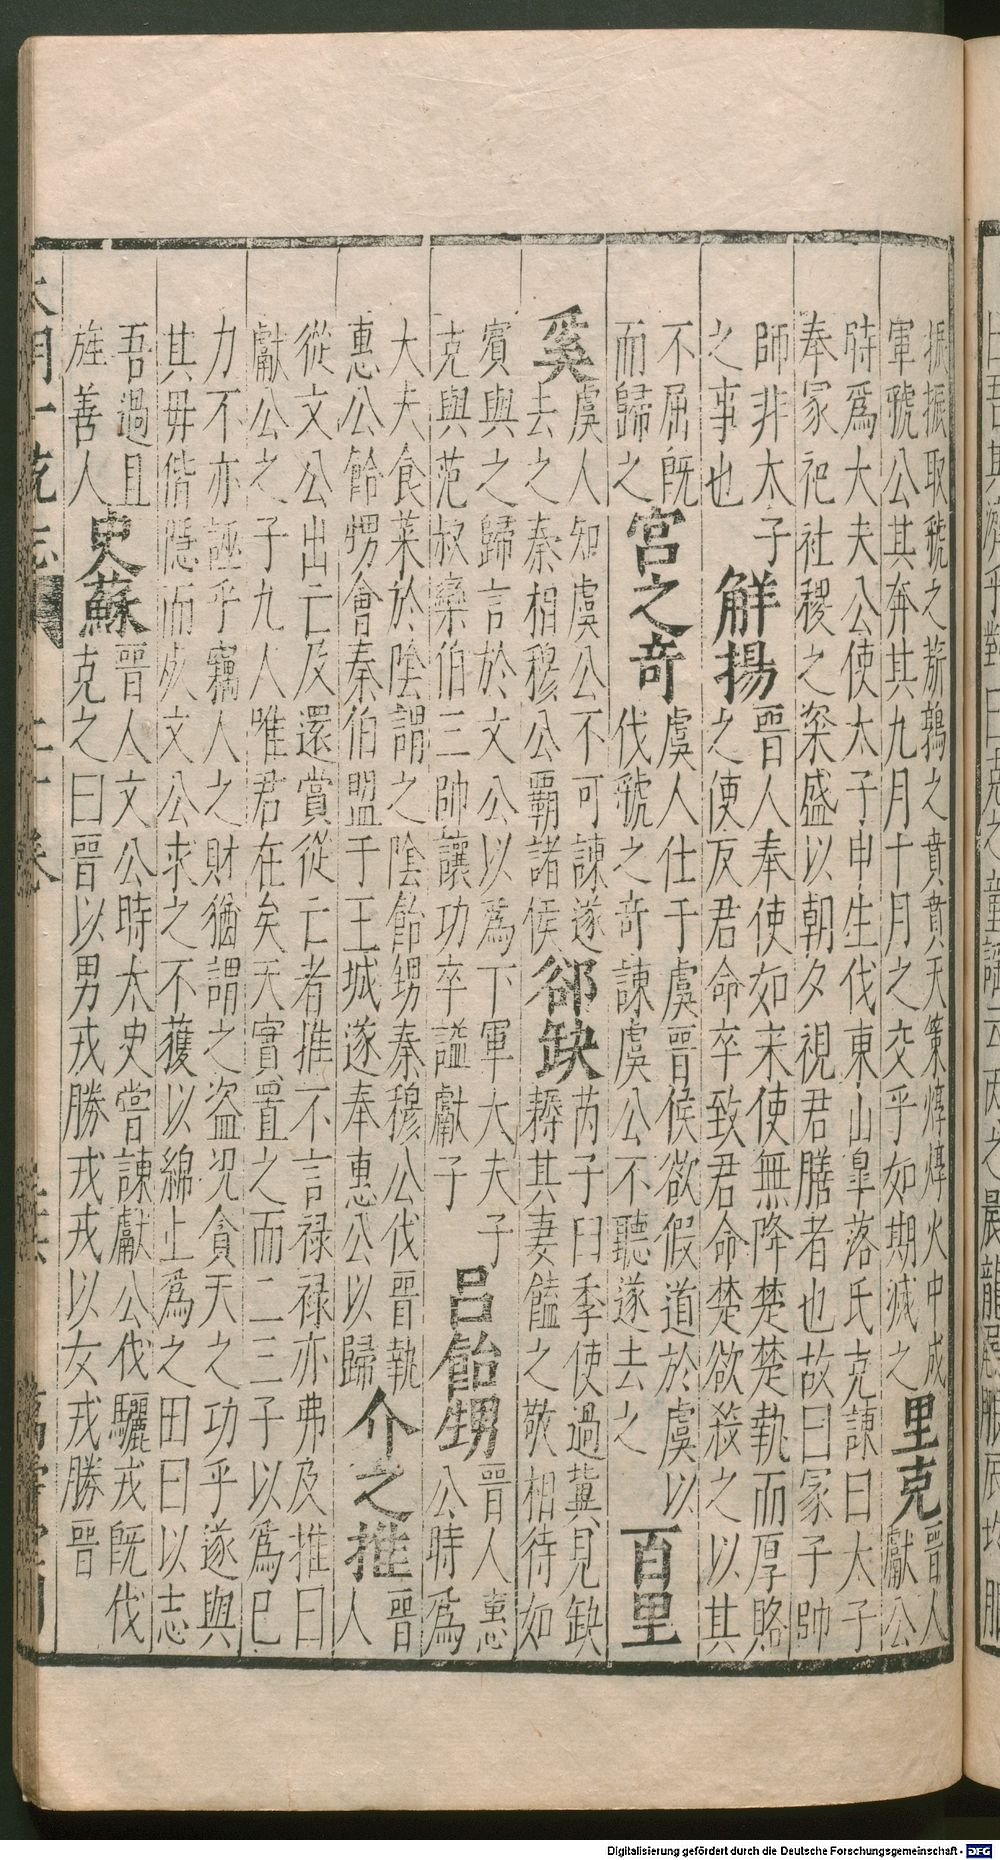 振振取虢之旂鶉之賁賁天策焞焞火中成
軍虢公其奔其九月十月之交乎如期滅之
里克
晉人獻公
時爲大夫公使太子申生伐東山皐落氏克諫曰太子
奉冢祀社稷之粢盛以朝夕視君膳者也故曰冢子帥
師非太子
之事也
解揚
晉人奉使如宋使無降楚楚執而厚賂
之使反君命卒致君命楚欲殺之以其
不屈旣
而歸之
宮之奇
虞人仕于虞晉侯欲假道於虞以
伐虢之奇諫虞公不聽遂去之
百里
奚
虞人知虞公不可諫遂
去之秦相穆公覇諸侯
郤缺
芮子臼季使過冀見缺
耨其妻饁之敬相待如
賓與之歸言於文公以爲下軍大夫子
克與范叔欒伯三帥讓功卒謚獻子
呂飴甥
晉人惠
公時爲
大夫食萊於陰謂之陰飴甥秦穆公伐晉執
惠公飴甥會秦伯盟于王城遂奉惠公以歸
介之推
晉
人
從文公出亡及還賞從亡者推不言禄禄亦弗及推曰
獻公之子九人唯君在矣天實置之而二三子以爲已
力不亦誣乎竊人之財猶謂之盗况貪天之功乎遂與
其毋偕隱而死文公求之不獲以綿上爲之田曰以志
吾過且
旌善人
史蘇
晉人文公時太史嘗諫獻公伐驪戎旣伐
克之曰晉以男戎勝戎戎以女戎勝晉
Digitalisierung gefördert durch die Deutsche Forschungsgemeinschaft - DFG